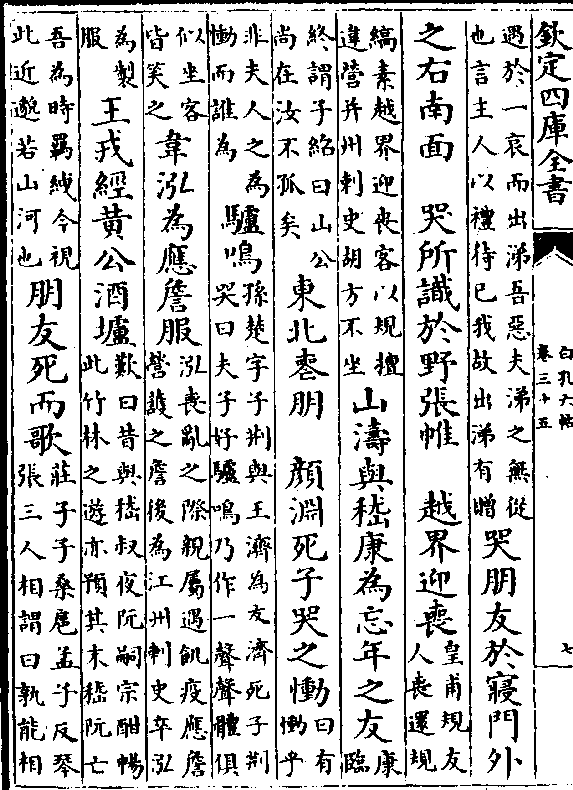 欽定四庫全書
白孔六帖
卷三十五
七
遇於一哀而出涕吾惡夫涕之無從
也言主人以禮待已我故出涕有贈
哭朋友於寢門外
之右南面　哭所識於野張帷　越界迎喪
皇甫規友
人喪還規
縞素越界迎喪客以規擅
違營并州刺史胡方不坐
山濤與嵇康為忘年之友
康
臨
終謂子紹曰山公
尚在汝不孤矣
東北喪朋　顏淵死子哭之慟
曰有
慟乎
非夫人之為
慟而誰為
驢鳴
孫楚字子荆與王濟為友濟死子荆
哭曰夫子好驢鳴乃作一聲聲體俱
似坐客
皆笑之
韋泓為應詹服
泓喪亂之際親屬遇飢疫應詹
營護之詹後為江州刺史卒泓
為製
服
王戎經黃公酒壚
歎曰昔與嵇叔夜阮嗣宗酣暢
此竹林之遊亦預其末嵇阮亡
吾為時羈紲今視
此近邈若山河也
朋友死而歌
莊子子桑扈孟子反琴
張三人相謂曰孰能相